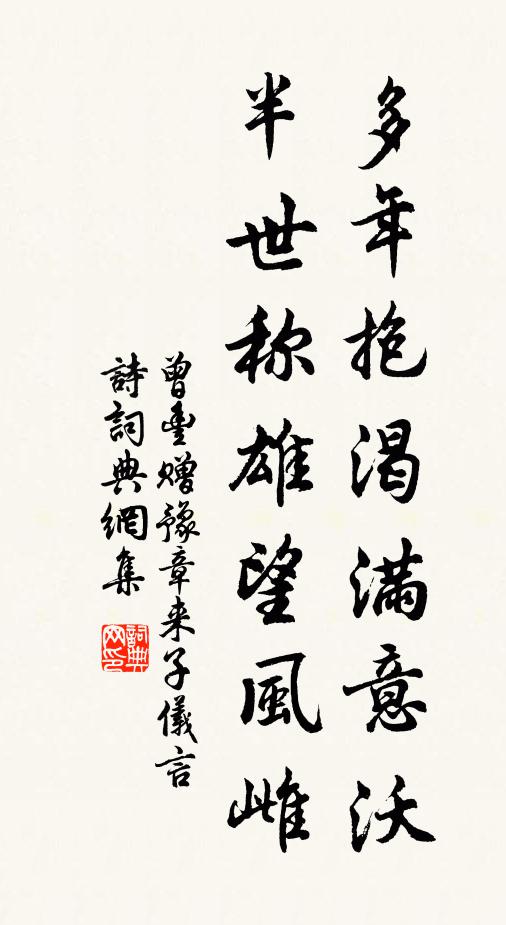 多年抱渴滿意沃
半世称雄望風雌
曾豊贈豫章来子儀言
詩詞典網集
詞典网印